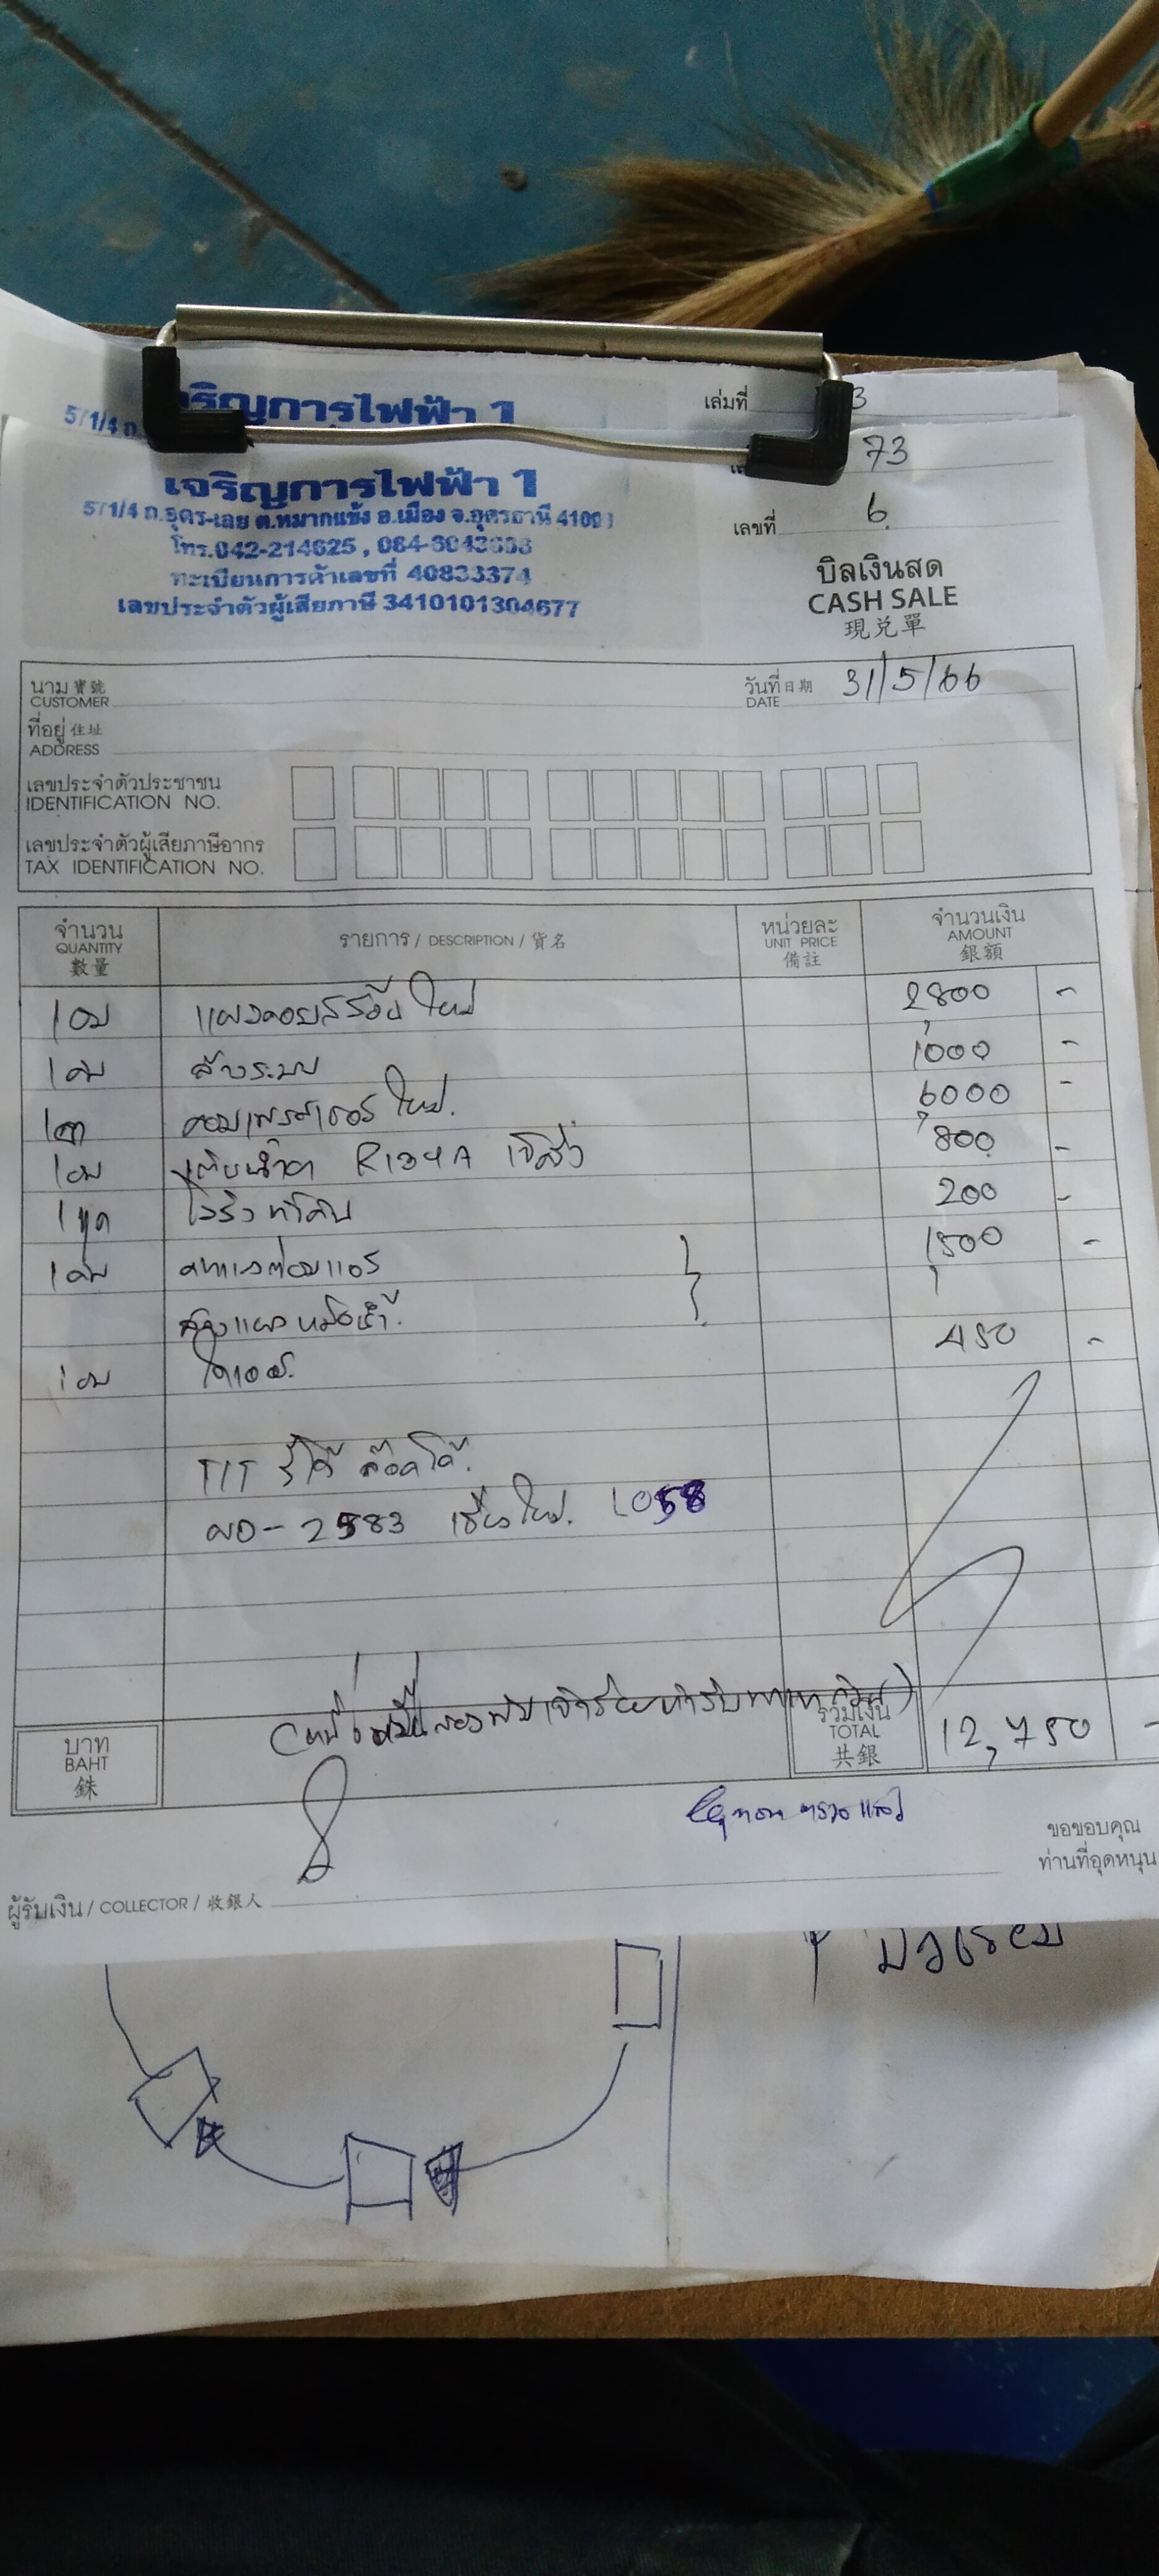 เจริญการไฟฟ้า 1
เล่มที่ 3
57/1/4 ถ.
73
เจริญการไฟฟ้า 1
57/1/4 ถ.อุดร-เลย ต.หมากแข้ง อ.เมือง จ.อุดรธานี 41000
โทร.042-214625 ,
ทะเบียนการค้าเลขที่ 40833374
เลขประจำตัวผู้เสียภาษี 3410101304677
เลขที่ 6
บิลเงินสด
CASH SALE
現兑單
นาม 寶號
CUSTOMER
วันที่ 日期 31/5/66
DATE
ที่อยู่ 住址
ADDRESS
เลขประจำตัวประชาชน
IDENTIFICATION NO.
เลขประจำตัวผู้เสียภาษีอากร
TAX IDENTIFICATION NO.
จำนวน
QUANTITY
數量
รายการ / DESCRIPTION / 貨名
หน่วยละ
UNIT PRICE
備註
จำนวนเงิน
AMOUNT
銀額
1 แผงคอยล์ร้อน ใหม่ 2,800 -
1 ล้างระบบ 1,000 -
1 คอมเพรสเซอร์ ใหม่. 6,000 -
1 เติมน้ำยา R134A 800 -
1 ชุด 200 -
1 1,500 -
1 450 -
TIT
2583 1058
บาท
BAHT
銖
รวมเงิน
TOTAL
共銀
12,750 -
ตรวจแล้ว
ขอขอบคุณ
ท่านที่อุดหนุน
ผู้รับเงิน / COLLECTOR / 收銀人